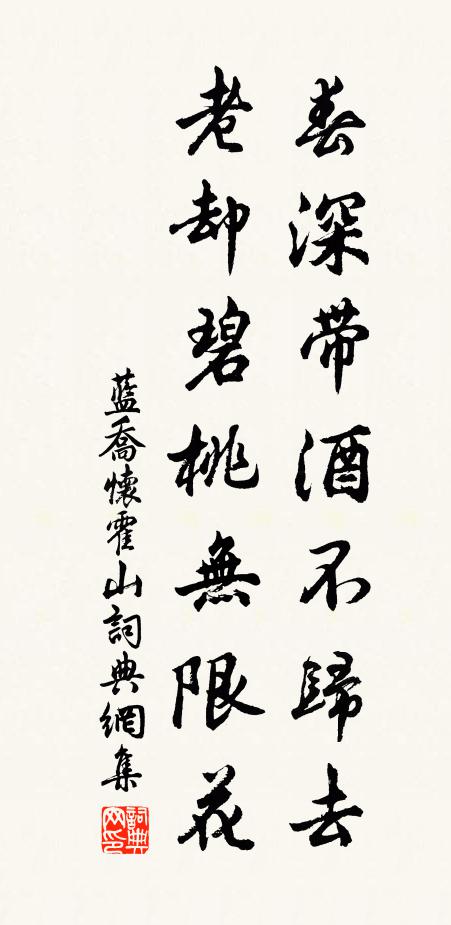 春深带酒不歸去
老却碧桃無限花
藍喬懷霍山詞典網集
詞典网印